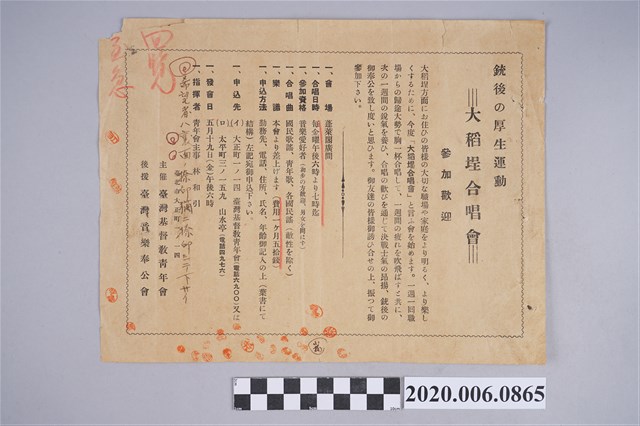 銃後の厚生運動
大稻埕合唱會
參加歡迎
大稻埕方面にお住ひの皆様の大切な職場や家庭をより明るく、より樂し
くするために、今度「大稻埕合唱會」と言ふ會を始めます。一週一回職
場からの歸途大勢で胸一杯合唱して、一週間の疲れを吹飛ばすと共に、
次の一週間の銳氣を養ひ、合唱の歡びを通じて決戰士氣の昂揚、銃後の
御奉公を致し度いと思ひます。御友達の皆様御誘ひ合せの上、振つて御
參加下さい。
一、會場 蓬萊國民學校
一、合唱日時 每金曜午後六時より七時迄
一、參加資格 音樂愛好者(初步の方歡迎、男女を問はず)
一、合唱曲 國民歌謠、青年歌、各國民謠(敵性を除く)
一、樂譜 本會より差上げます(費用一ヶ月五拾錢)
一、申込方法 勤務先、電話、住所、氏名、年齡御記入の上(葉書にて
結構)左記宛御申込下さい。
一、申込先 (イ)大正町一ノ一四 臺灣基督教青年會(電話六九〇〇)又は
(ロ)太平町三ノ一五九 山水亭(電話四九七六)
一、發會日 五月十九日(金)午後六時
一、指揮者 青年會主事 林和引
主催 臺灣基督教青年會
後援 臺灣音樂奉公會
回覽
至急
2020.006.0865